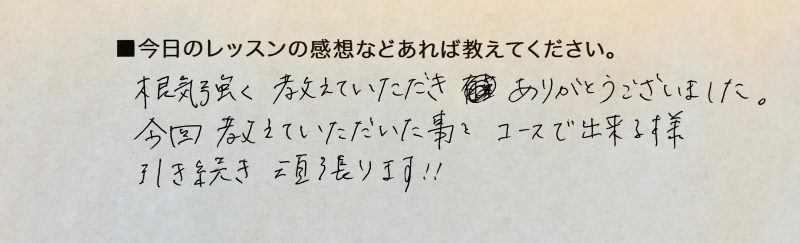 ■今日のレッスンの感想などあれば教えてください。
根気強く 教えていただき ありがとうございました。
今回 教えていただいた事を コースで出来る様
引き続き 頑張ります!!